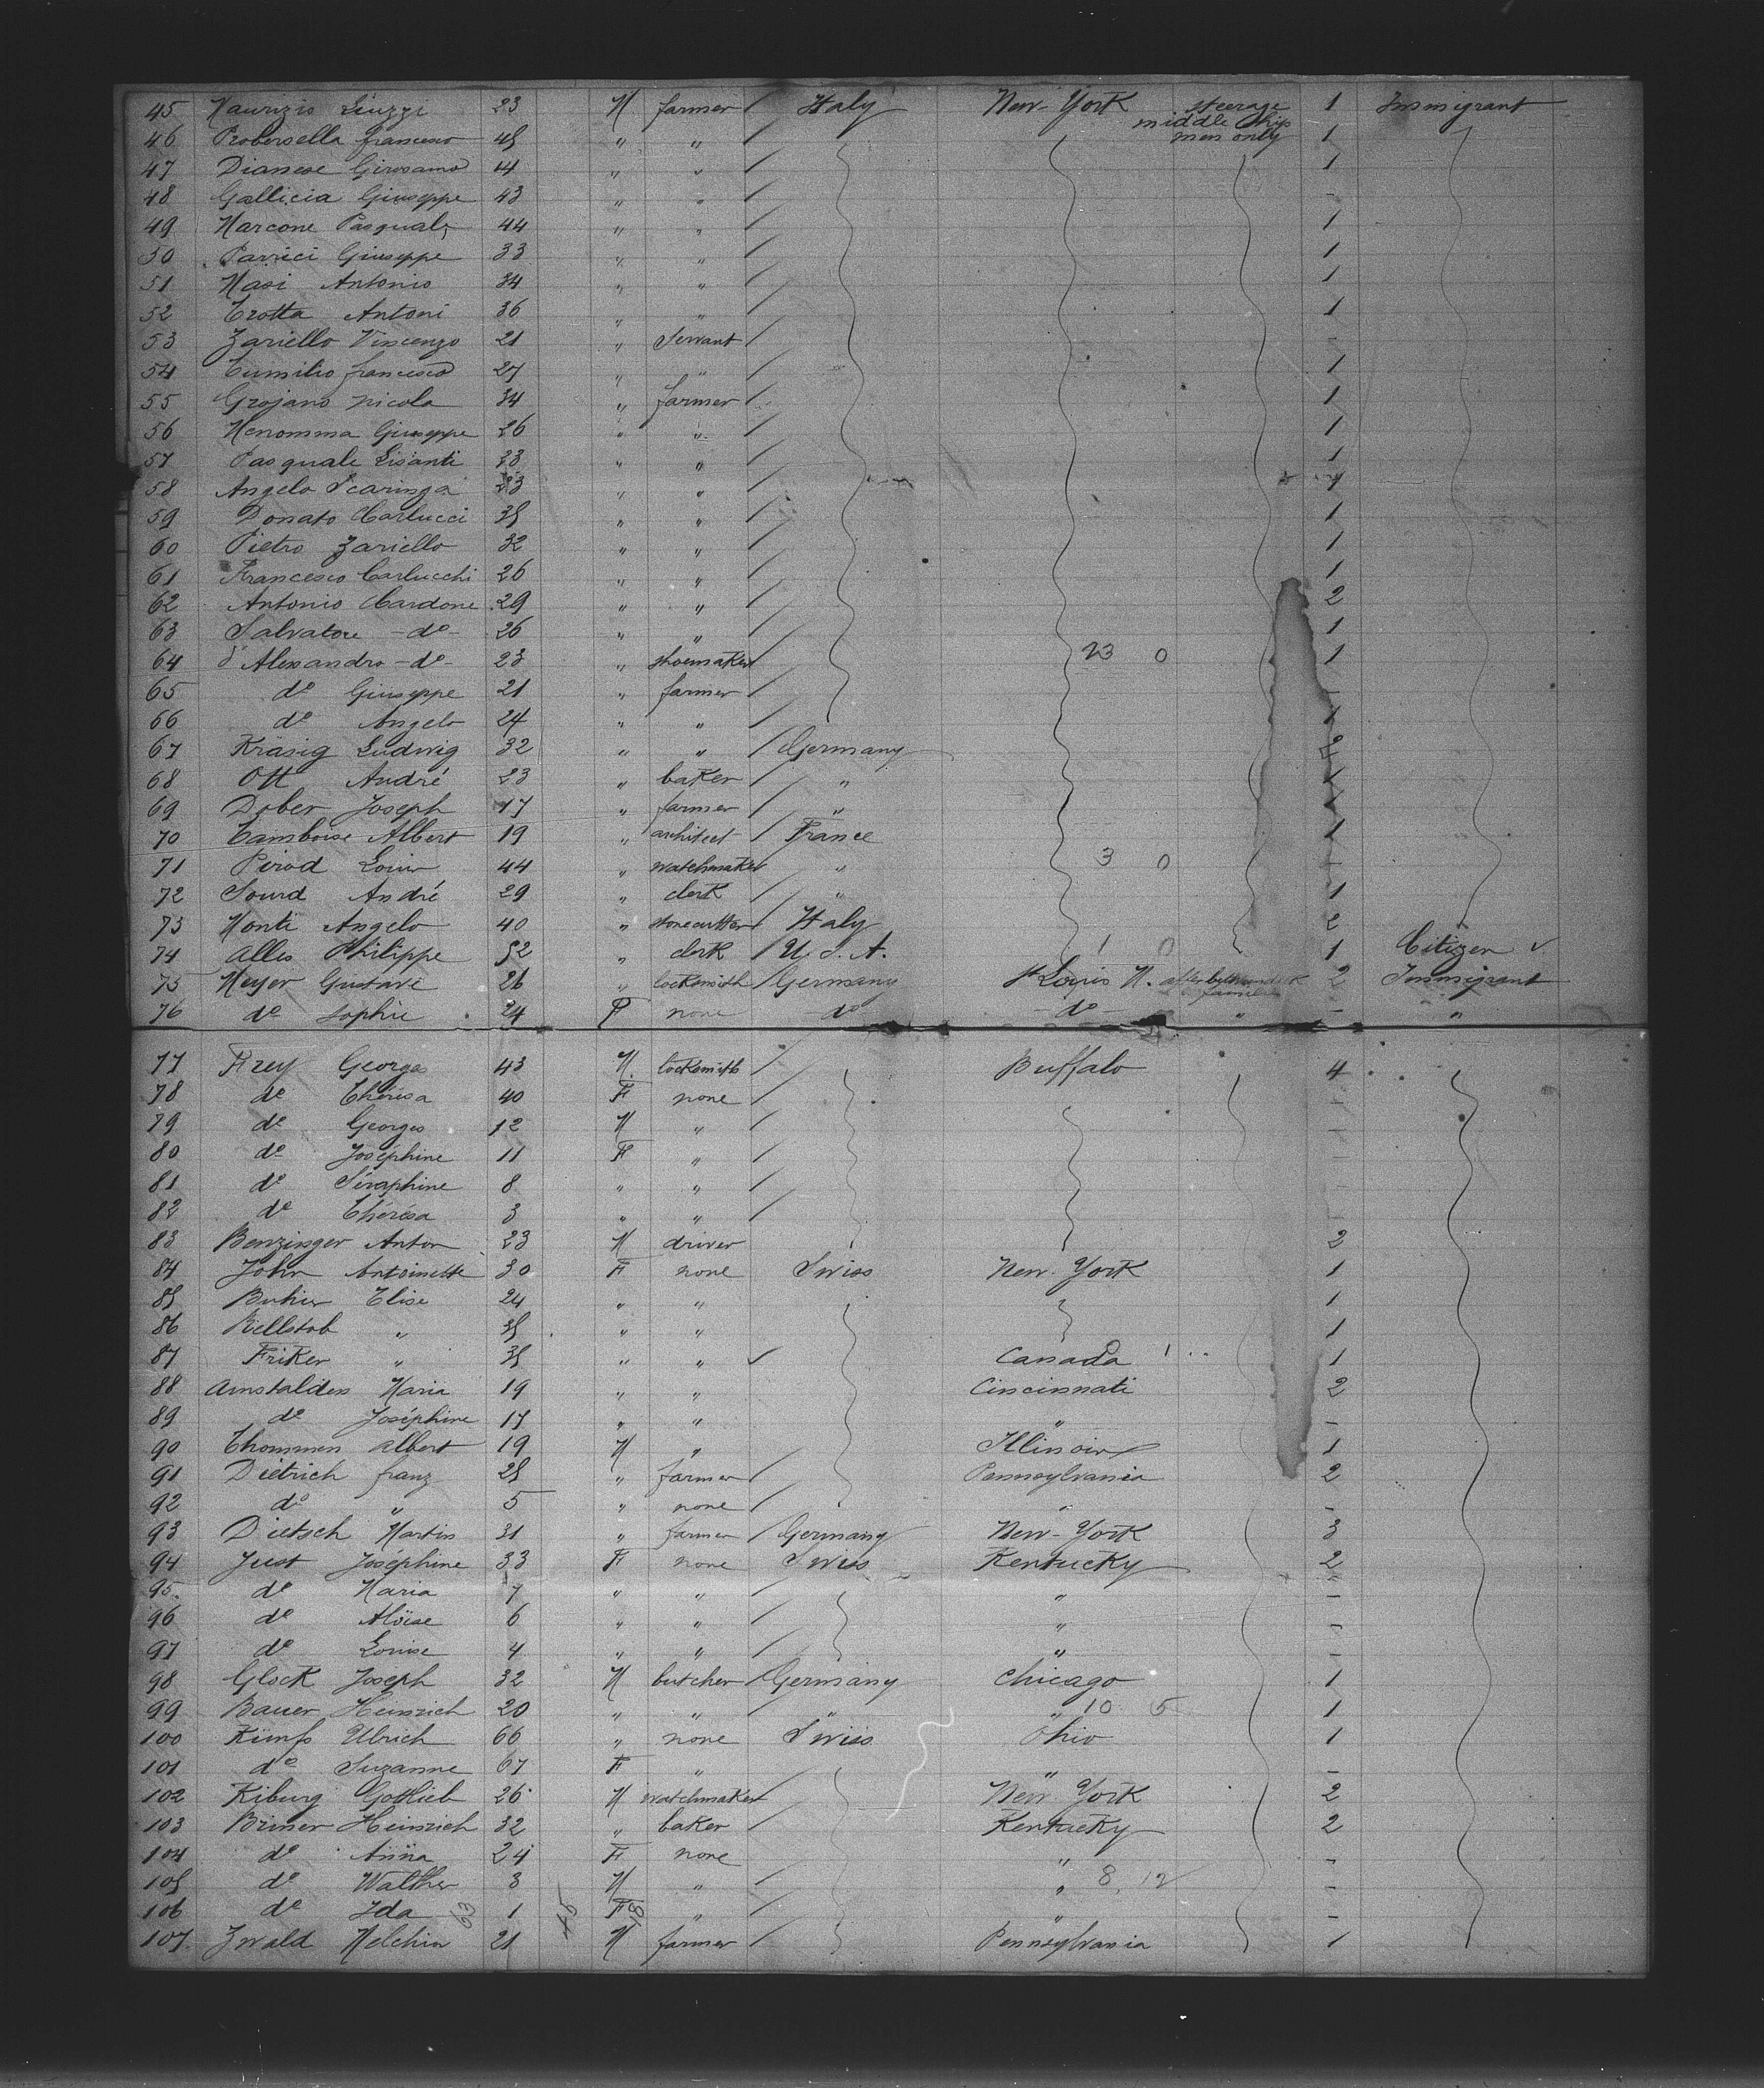 45 Maurizio Liuzzi 23 M. farmer / Italy New-York steerage middle ship men only 1 Immigrant
46 Probersella francesco 45 " " / 1
47 Dianese Girosamo 44 " " / 1
48 Gallicia Giuseppe 43 " " / -
49 Marcone Pasquale 44 " " / 1
50 Parrici Giuseppe 33 " " / 1
51 Masi Antonio 34 " " / 1
52 Trotta Antoni 36 " " / 1
53 Zariello Vincenzo 21 " Servant / -
54 Tumilio francesco 27 " " / 1
55 Grojano Nicola 34 " farmer / 1
56 Menomma Giuseppe 26 " " / 1
57 Pasquale Lisanti 33 " " / 1
58 Angelo Scaringa 23 " " / 1
59 Donato Carlucci 35 " " / 1
60 Pietro Zariello 32 " " / 1
61 Francesco Carlucchi 26 " " / 1
62 Antonio Cardone 29 " " / 2
63 Salvatore -do- 26 " " / 1
64 d'Alessandro -do- 23 " shoemaker / 23 0 1
65 do Giuseppe 21 " farmer / -
66 do Angelo 24 " " / 1
67 Kräsig Ludwig 32 " " / Germany 2
68 Ott André 23 " baker / " 1
69 Dober Joseph 17 " farmer / " 1
70 Tamboise Albert 19 " architect / France 1
71 Pirod Louis 44 " watchmaker " 3 0 -
72 Sourd André 29 " clerk / " 1
73 Monti Angelo 40 " stonecutter / Italy 2
74 Alles Philippe 52 " clerk / U.S.A. 1 0 1 Citizen ✓
75 Meyer Gustave 26 " locksmith / Germany St Louis M. 2 Immigrant
76 do Sophie 24 F none do -do- " - "
77 Frey George 43 M. locksmith / Buffalo 4
78 do Thérésa 40 F none / -
79 do Georges 12 M " / -
80 do Joséphine 11 F " / -
81 do Séraphine 8 " " / -
82 do Thérésa 3 " " / -
83 Benzinger Anton 23 M driver 2
84 John Antoinette 30 F none Swiss New-York 1
85 Buhier Elise 24 " " 1
86 Rellstab " 35 " " 1
87 Friker " 35 " " ✓ Canada 1 1
88 Amstalden Maria 19 " " Cincinnati 2
89 do Joséphine 17 " " " -
90 Thommen Albert 19 M " / Illinois 1
91 Dietrich franz 25 " farmer / Pennsylvania 2
92 do " 5 " none / " -
93 Dietsch Martin 31 " farmer / Germany New-York 3
94 Just Joséphine 33 F none Swiss Kentucky 2
95 do Maria 7 " " / " -
96 do Aloïse 6 " " / " -
97 do Louise 4 " " / " -
98 Glock Joseph 32 M butcher / Germany Chicago 1
99 Bauer Heinrich 20 " " " " 10 5 1
100 Kümf Ulrich 66 " none Swiss Ohio 1
101 do Suzanne 67 F " " -
102 Kiburg Gottlieb 26 M watchmaker New York 2
103 Briner Heinrich 32 " baker / Kentucky 2
104 do Anna 24 F none " -
105 do Walther 3 M " / " 8 12 -
106 do Ida 63 1 45 F 18 " / " -
107. Zwald Melchior 21 M farmer / Pennsylvania 1